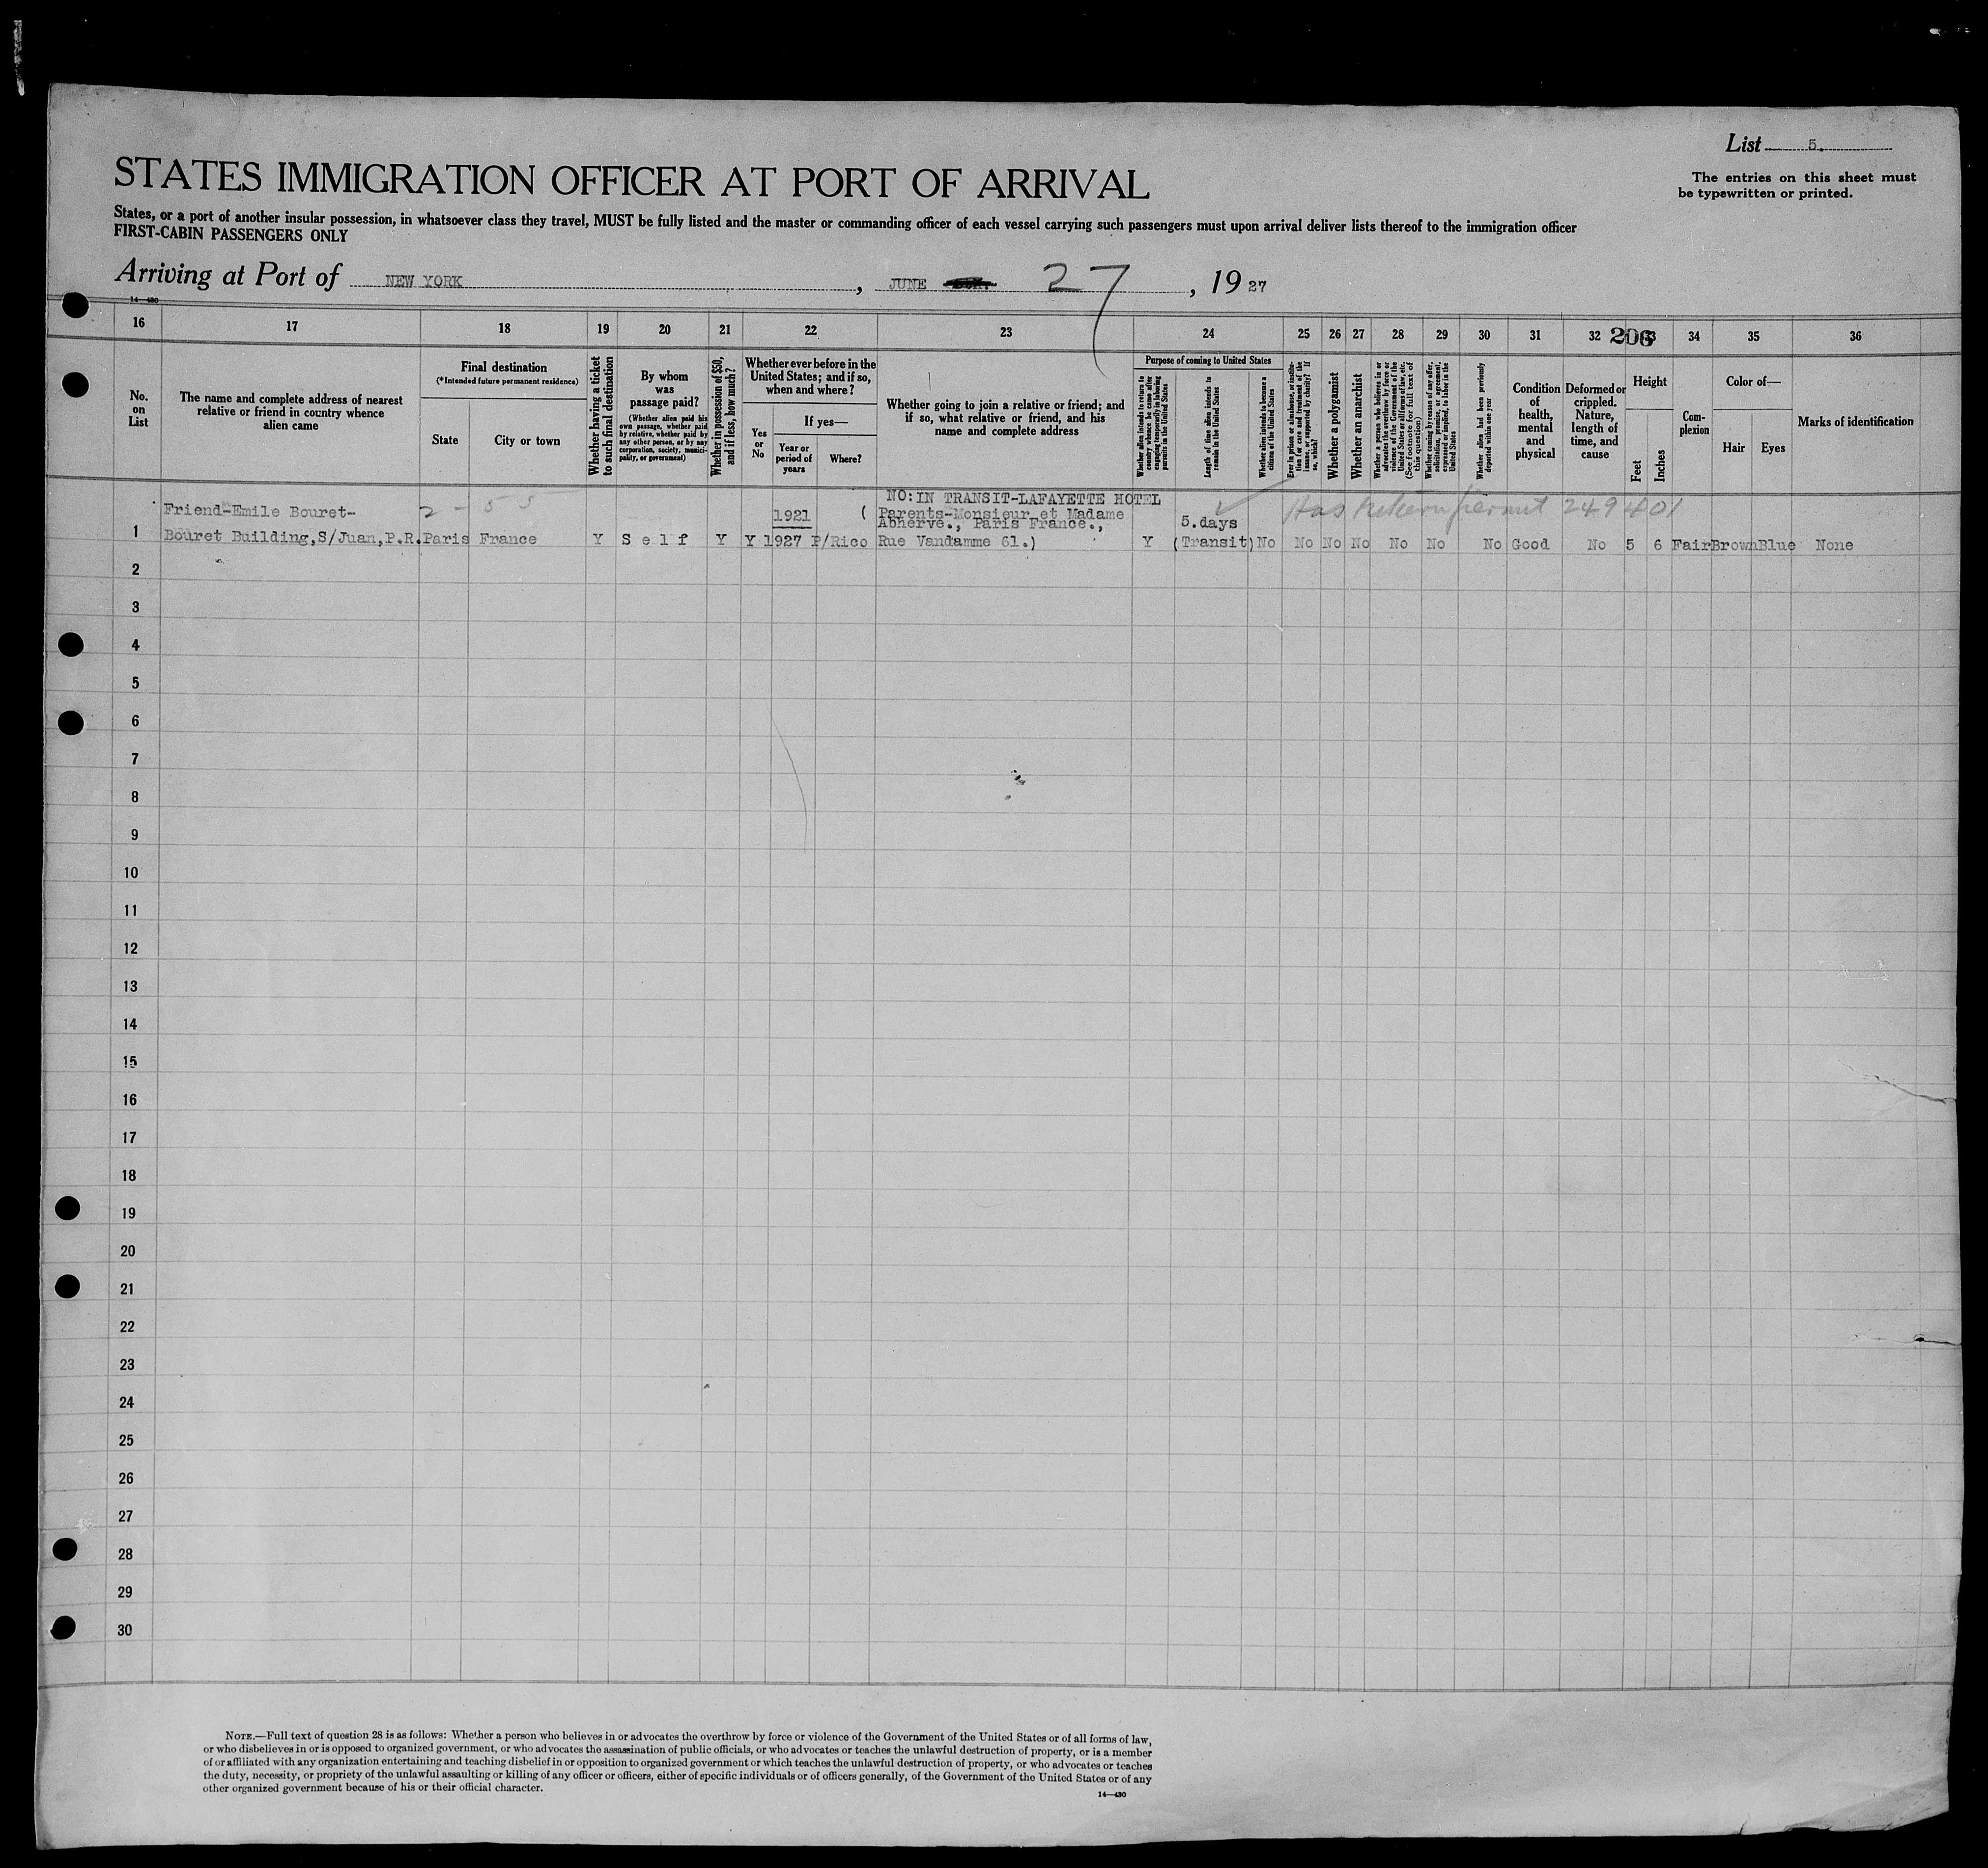 List 5.
The entries on this sheet must
be typewritten or printed.
STATES IMMIGRATION OFFICER AT PORT OF ARRIVAL
States, or a port of another insular possession, in whatsoever class they travel, MUST be fully listed and the master or commanding officer of each vessel carrying such passengers must upon arrival deliver lists thereof to the immigration officer
FIRST-CABIN PASSENGERS ONLY
Arriving at Port of NEW YORK, JUNE 27, 1927
14—430
16 17 18 19 20 21 22 23 24 25 26 27 28 29 30 31 32 33 34 35 36
206
No.
on
List
The name and complete address of nearest
relative or friend in country whence
alien came
Final destination
(*Intended future permanent residence)
State
City or town
Whether having a ticket
to such final destination
By whom
was
passage paid?
(Whether alien paid his
own passage, whether paid
by relative, whether paid by
any other person, or by any
corporation, society, munici-
pality, or government)
Whether in possession of $50,
and if less, how much?
Whether ever before in the
United States; and if so,
when and where?
Yes
or
No
If yes—
Year or
period of
years
Where?
Whether going to join a relative or friend; and
if so, what relative or friend, and his
name and complete address
Purpose of coming to United States
Whether alien intends to return to
country whence he came after
engaging temporarily in laboring
pursuits in the United States
Length of time alien intends to
remain in the United States
Whether alien intends to become a
citizen of the United States
Ever in prison or almshouse, or institu-
tion for care and treatment of the
insane, or supported by charity? If
so, which?
Whether a polygamist
Whether an anarchist
Whether a person who believes in or
advocates the overthrow by force or
violence of the Government of the
United States or all forms of law, etc.
(See footnote for full text of
this question)
Whether coming by reason of any offer,
solicitation, promise, or agreement,
expressed or implied, to labor in the
United States
Whether alien had been previously
deported within one year
Condition
of
health,
mental
and
physical
Deformed or
crippled.
Nature,
length of
time, and
cause
Height
Feet
Inches
Com-
plexion
Color of—
Hair
Eyes
Marks of identification
NO: IN TRANSIT-LAFAYETTE HOTEL
Friend-Emile Bouret- 2 - 55 1921 ( Parents-Monsieur et Madame Has return permit 249401
Abherve., Paris France., 5.days
1 Bouret Building,S/Juan,P.R. Paris France Y Self Y Y 1927 P/Rico Rue Vandamme 61.) Y (Transit) No No No No No No No Good No 5 6 Fair Brown Blue None
2
3
4
5
6
7
8
9
10
11
12
13
14
15
16
17
18
19
20
21
22
23
24
25
26
27
28
29
30
NOTE.—Full text of question 28 is as follows: Whether a person who believes in or advocates the overthrow by force or violence of the Government of the United States or of all forms of law,
or who disbelieves in or is opposed to organized government, or who advocates the assassination of public officials, or who advocates or teaches the unlawful destruction of property, or is a member
of or affiliated with any organization entertaining and teaching disbelief in or opposition to organized government or which teaches the unlawful destruction of property, or who advocates or teaches
the duty, necessity, or propriety of the unlawful assaulting or killing of any officer or officers, either of specific individuals or of officers generally, of the Government of the United States or of any
other organized government because of his or their official character.
14—430